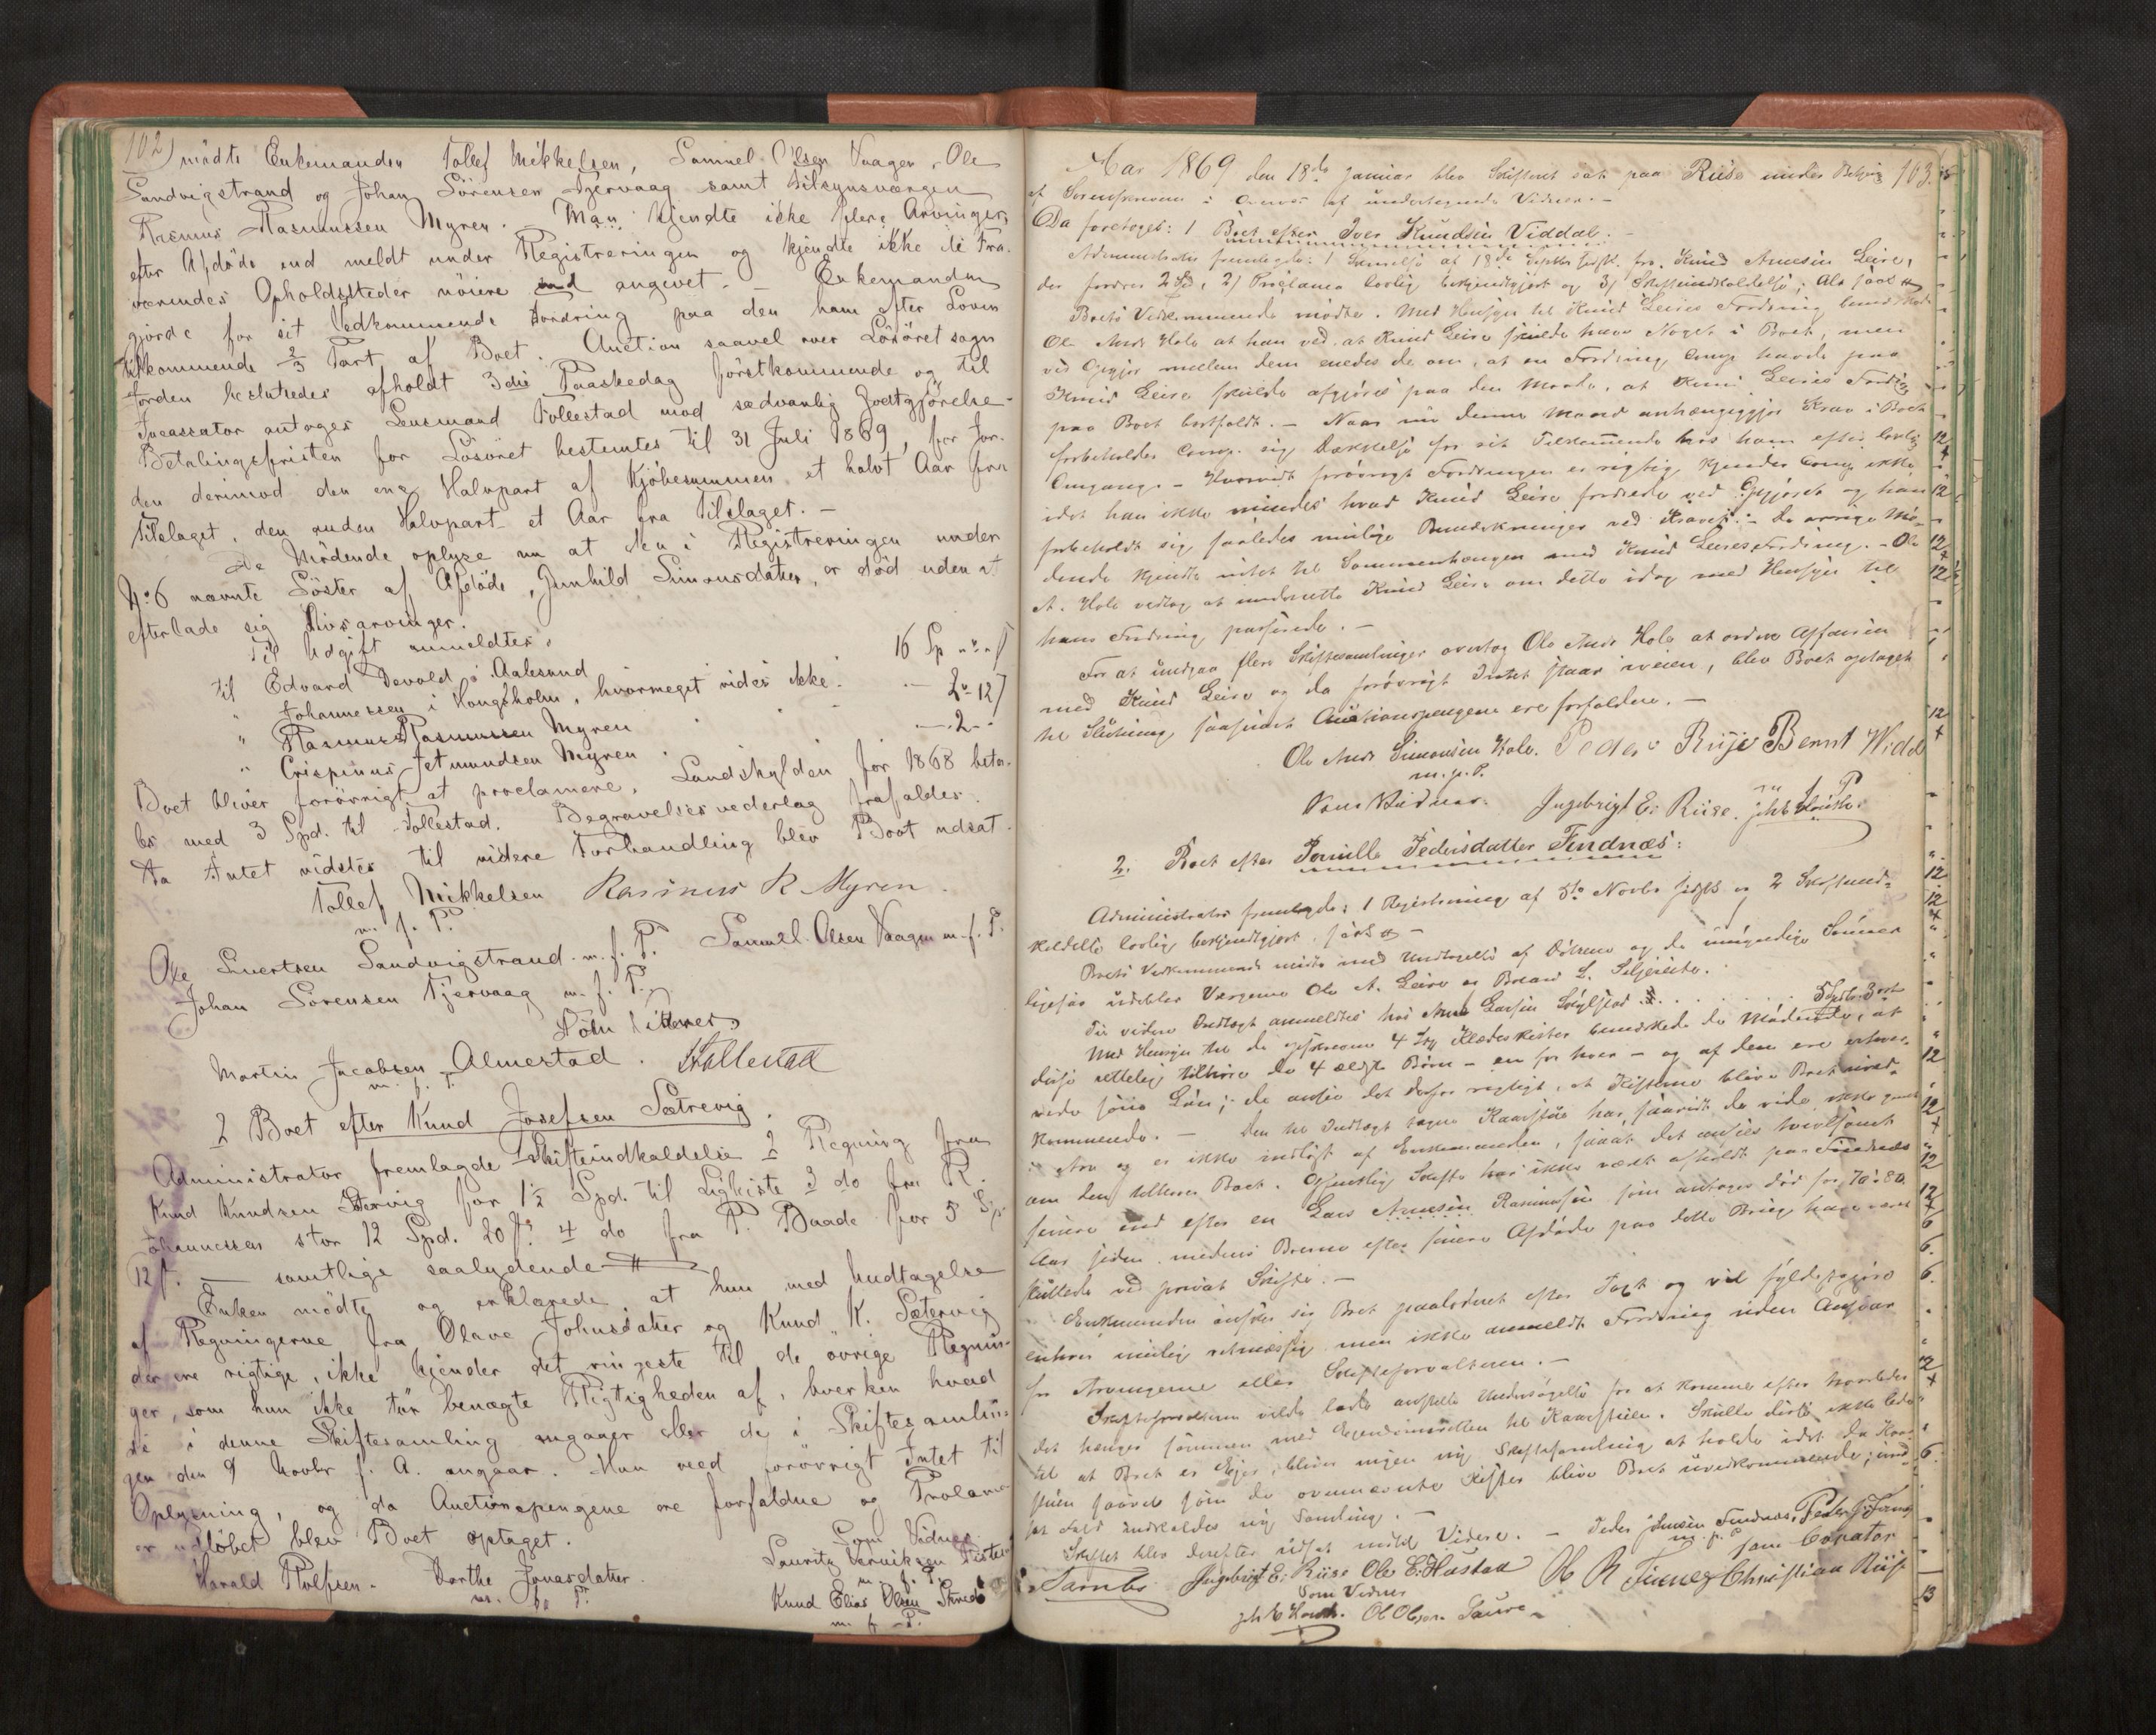 102
mødte Enkemanden Tollef Mikkelsen, Samuel Olsen Vaagen, Ole
Sandvigstrand og Johan Sørensen Tjervaag samt Tilsynsværgen
Rasmus Rasmussen Myren. Man kjendte ikke flere Arvinger
efter Afdøde end meldt under Registreringen og kjendte ikke de Fra-
værendes Opholdssteder nøiere end angivet. – Enkemanden
gjorde for sit Vedkommende Fordring paa den ham efter Loven
tilkommende 2/3 Part af Boet. Auction saavel over Løsøret som
Jorden besluttedes afholdt 3die Paaskedag førstkommende og til
Incassator antoges Lensmand Follestad mod sædvanlig Godtgjørelse.
Betalingsfristen for Løsøret bestemtes til 31 Juli 1869, for Jor-
den derimod den ene Halvpart af Kjøbesummen et halvt Aar fra
Tilslaget, den anden Halvpart et Aar fra Tilslaget. –
De Mødende oplyse nu at den i Registreringen under
No 6 nævnte Søster af Afdøde, Gunhild Simonsdatter, er død uden at
efterlade sig Livsarvinger.
Til Udgift anmeldtes:
til Edvard Devold i Aalesund 16 Sp " "
" Johannessen i Kongsholm, hvormeget vides ikke.
" Rasmus Rasmussen Myren
" Crispinus Jetmundsen Myren – 2 –
Boet bliver forøvrigt at proclamere. Landskylden for 1868 beta-
les med 3 Spd. til Follestad. Begravelsesvederlag frafaldes.
Da Intet vidstes til videre Forhandling blev Boet udsat.
Tollef Mikkelsen Rasmus R Myren.
m. f. P.
Ole Sivertsen Sandvigstrand m. f. P. Samuel Olsen Vaagen m. f. P.
Johan Sørensen Tjervaag m. f. P.
Som Vidner
Martin Jacobsen Almestad. Follestad
m. f. P.
2 Boet efter Knud Josefsen Sætrevig.
Administrator fremlagde Skifteindkaldelse 2 Regning fra
Knud Knudsen Sætervig for 1½ Spd. til Ligkiste 3 do fra R.
Johannessen stor 12 Spd. 20 ß 4 do fra P. Baade for 5 Sp.
12 ß. – samtlige saalydende
Enken mødte og erklærede at hun med Undtagelse
af Regningerne fra Olave Johnsdatter og Knud K. Sætervig
der ere rigtige, ikke kjender det ringeste til de øvrige Regnin-
ger, som hun ikke tør benægte Rigtigheden af, hverken hvad
de i denne Skiftesamling angaaer eller de i Skiftesamlin-
gen den 9 Novbr f. A. angaar. Hun veed forøvrigt Intet til
Oplysning, og da Auctionspengene ere forfaldne og Proclama
er udløbet blev Boet optaget.
Som Vidner
Harald Rolfsen. Dorthe Jonasdatter Lauritz
m. f. P. m. f. P.
Knud Elias Olsen
m. f. P.
103.
Aar 1869 den 18de Januar blev Skifteret sat paa Riise under Betjening
af Sorenskriveren i Overvær af undertegnede Vidner. –
Da foretoges: 1 Boet efter Iver Knudsen Viddal. –
Administrator fremlagde: 1 Skrivelse af 18de Septbr sidstl. fra Knud Arnesen Leire,
der fordrer 2 Spd, 2) Proclama lovlig bekjendtgjort og 3) Skifteindkaldelse; Alt saal.
Boets Vedkommende mødte. Med Hensyn til Knud Leires Fordring bemærkede
Ole Ands Hole at han ved at Knud Leire skulde have Noget i Boet, men
ved Opgjør mellem dem enedes de om, at en Fordring Comp. havde paa
Knud Leire skulde afgjøres paa den Maade, at Knud Leires Fordring
paa Boet bortfaldt. – Naar nu denne Mand anhængiggjør Krav i Boet
forbeholder Comp. sig Dækkelse for sit Tilkommende hos ham efter lovlig
Omgang. – Hvorvidt forøvrigt Fordringen er rigtig kjender Comp. ikke,
idet han ikke mindes hvad Knud Leire fordrede ved Opgjøret og han
forbeholdt sig saaledes mulige Bemærkninger ved Kravet. – De øvrige Mø-
dende kjendte intet til Sammenhængen med Knud Leires Fordring. – Ole
A. Hole vedtog at underrette Knud Leire om dette idag med Hensyn til
hans Fordring passerede. –
For at undgaa flere Skiftesamlinger overtog Ole Ands Hole at ordne Affairen
med Knud Leire og da forøvrigt Intet staar iveien, blev Boet optaget
til Slutning saasnart Auctionspengene ere forfaldne. –
Ole Ands Simonsen Hole. Peder Riise Bernt Widd
m. p. P. m f P
Som Vidner: Ingebrigt E: Riise.
2. Boet efter Pernille Pedersdatter Findnæs:
Administrator fremlagde: 1 Registrering af 5te Novbr sidstl. og 2 Skifteind-
kaldelse lovlig bekjendtgjort, saal. –
Boets Vedkommende mødte med Undtagelse af Døtrene og de umyndige Sønner
ligesaa udebleve Værgerne Ole A. Leire og
Til videre Indtægt anmeldtes hos Lars 5 Spd. 3 ort
Med Hensyn til de opskrevne 4 Stk Klædeskister bemærkede de Mødende, at
disse rettelig tilhøre de 4 ældste Børn – en for hver – og af dem ere erhver-
vede som Løn; de ansee det derfor rigtigt, at Kisterne blive Boet uved-
kommende. – Den til Indtægt tagne Kaarstue har, saavidt de vide ikke gaaet
i Arv og er ikke indløst af Enkemanden, saaat det ansees tvivlsomt
om den tilhører Boet. Offentlig Skifte har ikke været afholdt paa Findnæs
senere end efter en Lars Arnesen Rasmussen som antages død for 70 à 80
Aar siden, medens Boerne efter senere Afdøde paa dette Brug have været
skiftede ved privat Skifte. –
Enkemanden ønsker sig Boet paaloddet efter Taxt og vil fyldestgjøre
enhver mulig retmæssig men ikke anmeldt Fordring uden Ansvar
for Arvingerne eller Skifteforvalteren. –
Skifteforvalteren vilde lade anstille Undersøgelse for at komme efter hvorledes
det hænger sammen med Eiendomsretten til Kaarstuen. Skulde dette ikke lede
til at Boet er Eier, bliver ingen ny Skiftesamling at holde idet da Kaar-
stuen saavel som de ovennævnte Kister blive Boet uvedkommende; i mod-
sat Fald indkaldes ny Samling. –
Skiftet blev derefter udsat indtil Videre. – Peder Jensen Findnæs, Peder J:
m. p. P som Curator
Ingebrigt E: Riise Ole E: Hastad Christian Riise
Som Vidner
Ol Olsen Saure